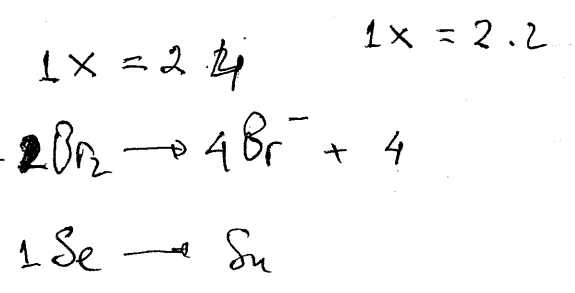 1x = 2.2
1x = 2.
2Br₂ → 4Br⁻ + 4
1Se →